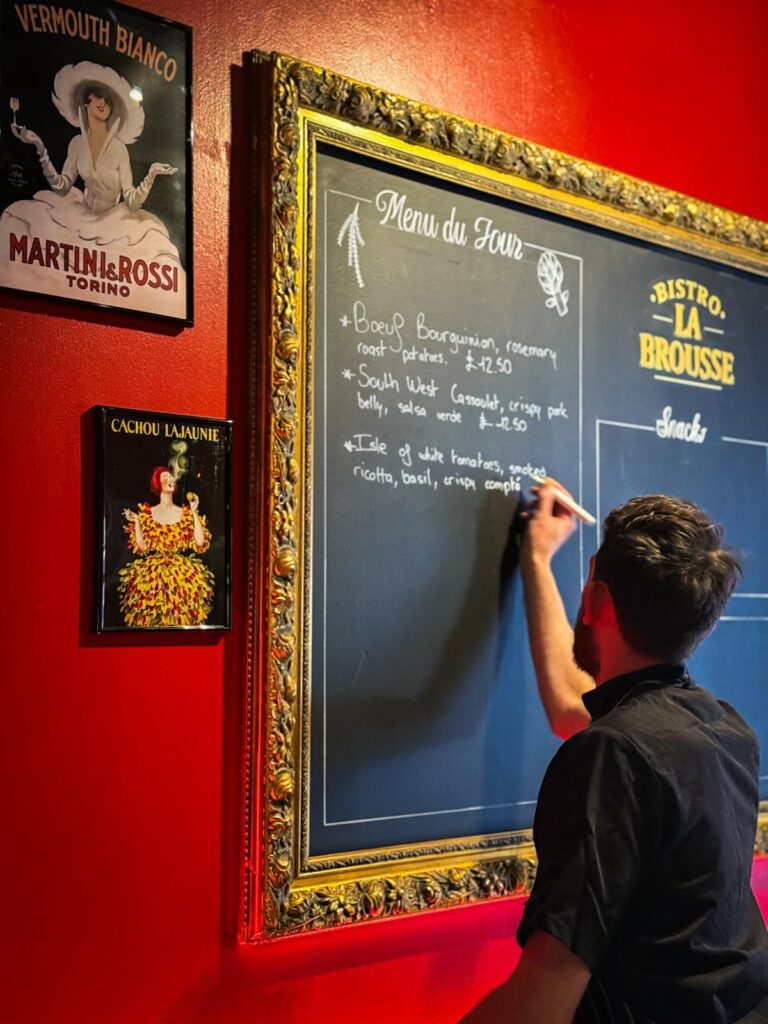 VERMOUTH BIANCO
MARTINI & ROSSI
TORINO
CACHOU LAJAUNIE
Menu du Jour
*Boeuf Bourguinion, rosemary
roast potatoes. £12.50
*South West Cassoulet, crispy pork
belly, salsa verde £12.50
*Isle of white tomatoes, smoked
ricotta, basil, crispy compté
BISTRO
LA
BROUSSE
Snacks